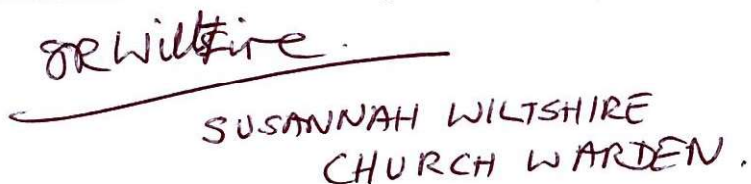 SRWiltshire.
SUSANNAH WILTSHIRE
CHURCH WARDEN.